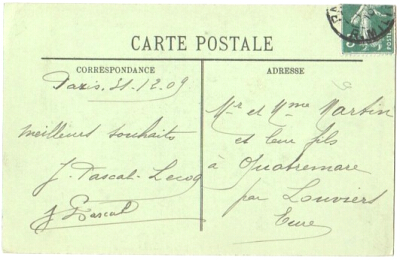 CARTE POSTALE
CORRESPONDANCE
Paris. 31.12.09
meilleurs souhaits
J. Pascal-Lecoq
J Pascal
ADRESSE
Mr et Mme Martin
et leur fils
à Quatremare
par Louviers
Eure